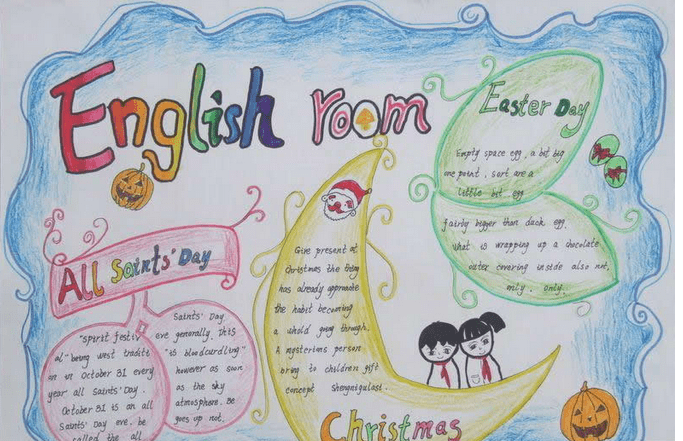 English room
Easter Day
Empty space egg, a bit big
one point, sort are a
little bit egg
fairly bigger than duck egg.
What is wrapping up a chocolate
outer covering inside also not,
only. only.
All Saints' Day
"Spirit festiv
al" being west traditi
on on October 31 every
year all Saints' Day.
October 31 is an all
Saints' Day eve. be
called the all
Saints' Day
eve generally. This
"is bloodcurdling"
however as soon
as the sky
atmosphere. Be
goes up not.
Give present at
Christmas the thing
has already approxate
the habit becoming
a whold going through.
A mysterims person
bring to children gift
concept Shengnigulast.
Christmas